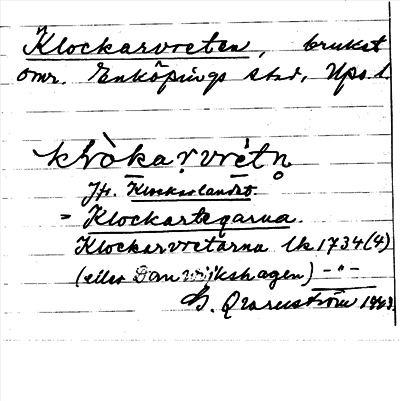 Klockarvreten, brukat
omr. Enköpings stad, Ups. l.
klòkarvrétn
Jfr. Klockarlandet.
= Klockartegarna.
Klockarvretarna lk 1734 (4)
(eller Danwijkshagen) -"-
G. Qvarnström 1943.